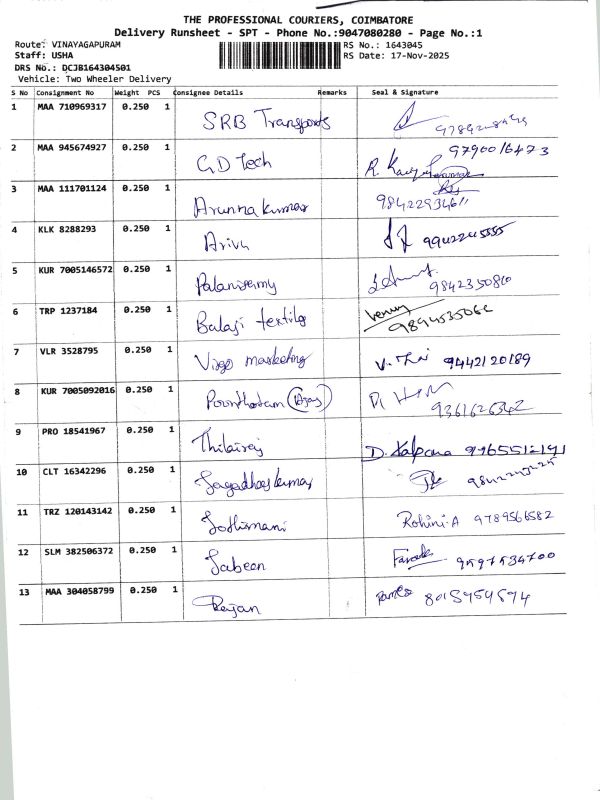 THE PROFESSIONAL COURIERS, COIMBATORE
Delivery Runsheet - SPT - Phone No.:9047080280 - Page No.:1
Route: VINAYAGAPURAM RS No.: 1643045
Staff: USHA RS Date: 17-Nov-2025
DRS No.: DCJB164304501
Vehicle: Two Wheeler Delivery
S No Consignment No Weight PCS Consignee Details Remarks Seal & Signature
1 MAA 710969317 0.250 1 SRB Transports
2 MAA 945674927 0.250 1 GD Tech 9790016473
3 MAA 111701124 0.250 1 Arunnakumar 9842293461
4 KLK 8288293 0.250 1 Arivu 9942245555
5 KUR 7005146572 0.250 1 Palanisamy 9842350810
6 TRP 1237184 0.250 1 Balaji textile
7 VLR 3528795 0.250 1 Viso marketing 9442120189
8 KUR 7005092016 0.250 1 9361626342
9 PRO 18541967 0.250 1 Thilairaj D. Kalpana 9965512191
10 CLT 16342296 0.250 1 Jagadhaskumar
11 TRZ 120143142 0.250 1 Jothimani Rohini.A 9789566582
12 SLM 382506372 0.250 1 Jabeen 9597534700
13 MAA 304058799 0.250 1 Rajan